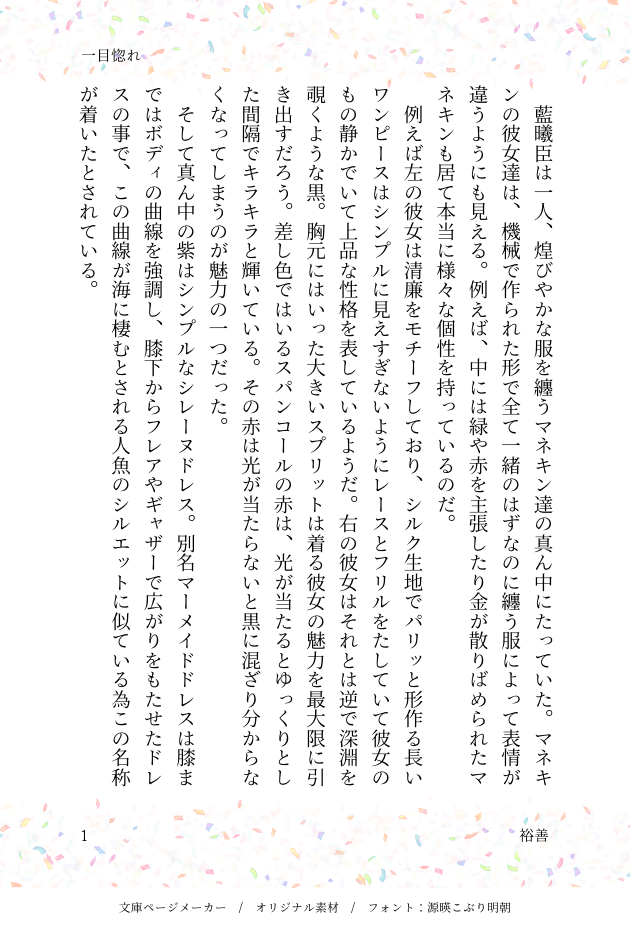 一目惚れ
　藍曦臣は一人、煌びやかな服を纏うマネキン達の真ん中にたっていた。マネキ
ンの彼女達は、機械で作られた形で全て一緒のはずなのに纏う服によって表情が
違うようにも見える。例えば、中には緑や赤を主張したり金が散りばめられたマ
ネキンも居て本当に様々な個性を持っているのだ。
　例えば左の彼女は清廉をモチーフしており、シルク生地でパリッと形作る長い
ワンピースはシンプルに見えすぎないようにレースとフリルをたしていて彼女の
もの静かでいて上品な性格を表しているようだ。右の彼女はそれとは逆で深淵を
覗くような黒。胸元にはいった大きいスプリットは着る彼女の魅力を最大限に引
き出すだろう。差し色ではいるスパンコールの赤は、光が当たるとゆっくりとし
た間隔でキラキラと輝いている。その赤は光が当たらないと黒に混ざり分からな
くなってしまうのが魅力の一つだった。
　そして真ん中の紫はシンプルなシレーヌドレス。別名マーメイドドレスは膝ま
ではボディの曲線を強調し、膝下からフレアやギャザーで広がりをもたせたドレ
スの事で、この曲線が海に棲むとされる人魚のシルエットに似ている為この名称
が着いたとされている。
1
裕善
文庫ページメーカー　/　オリジナル素材　/　フォント：源暎こぶり明朝